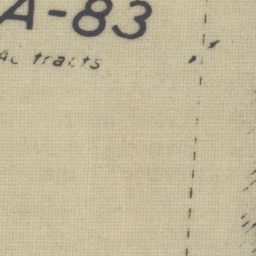 A-83
tracts